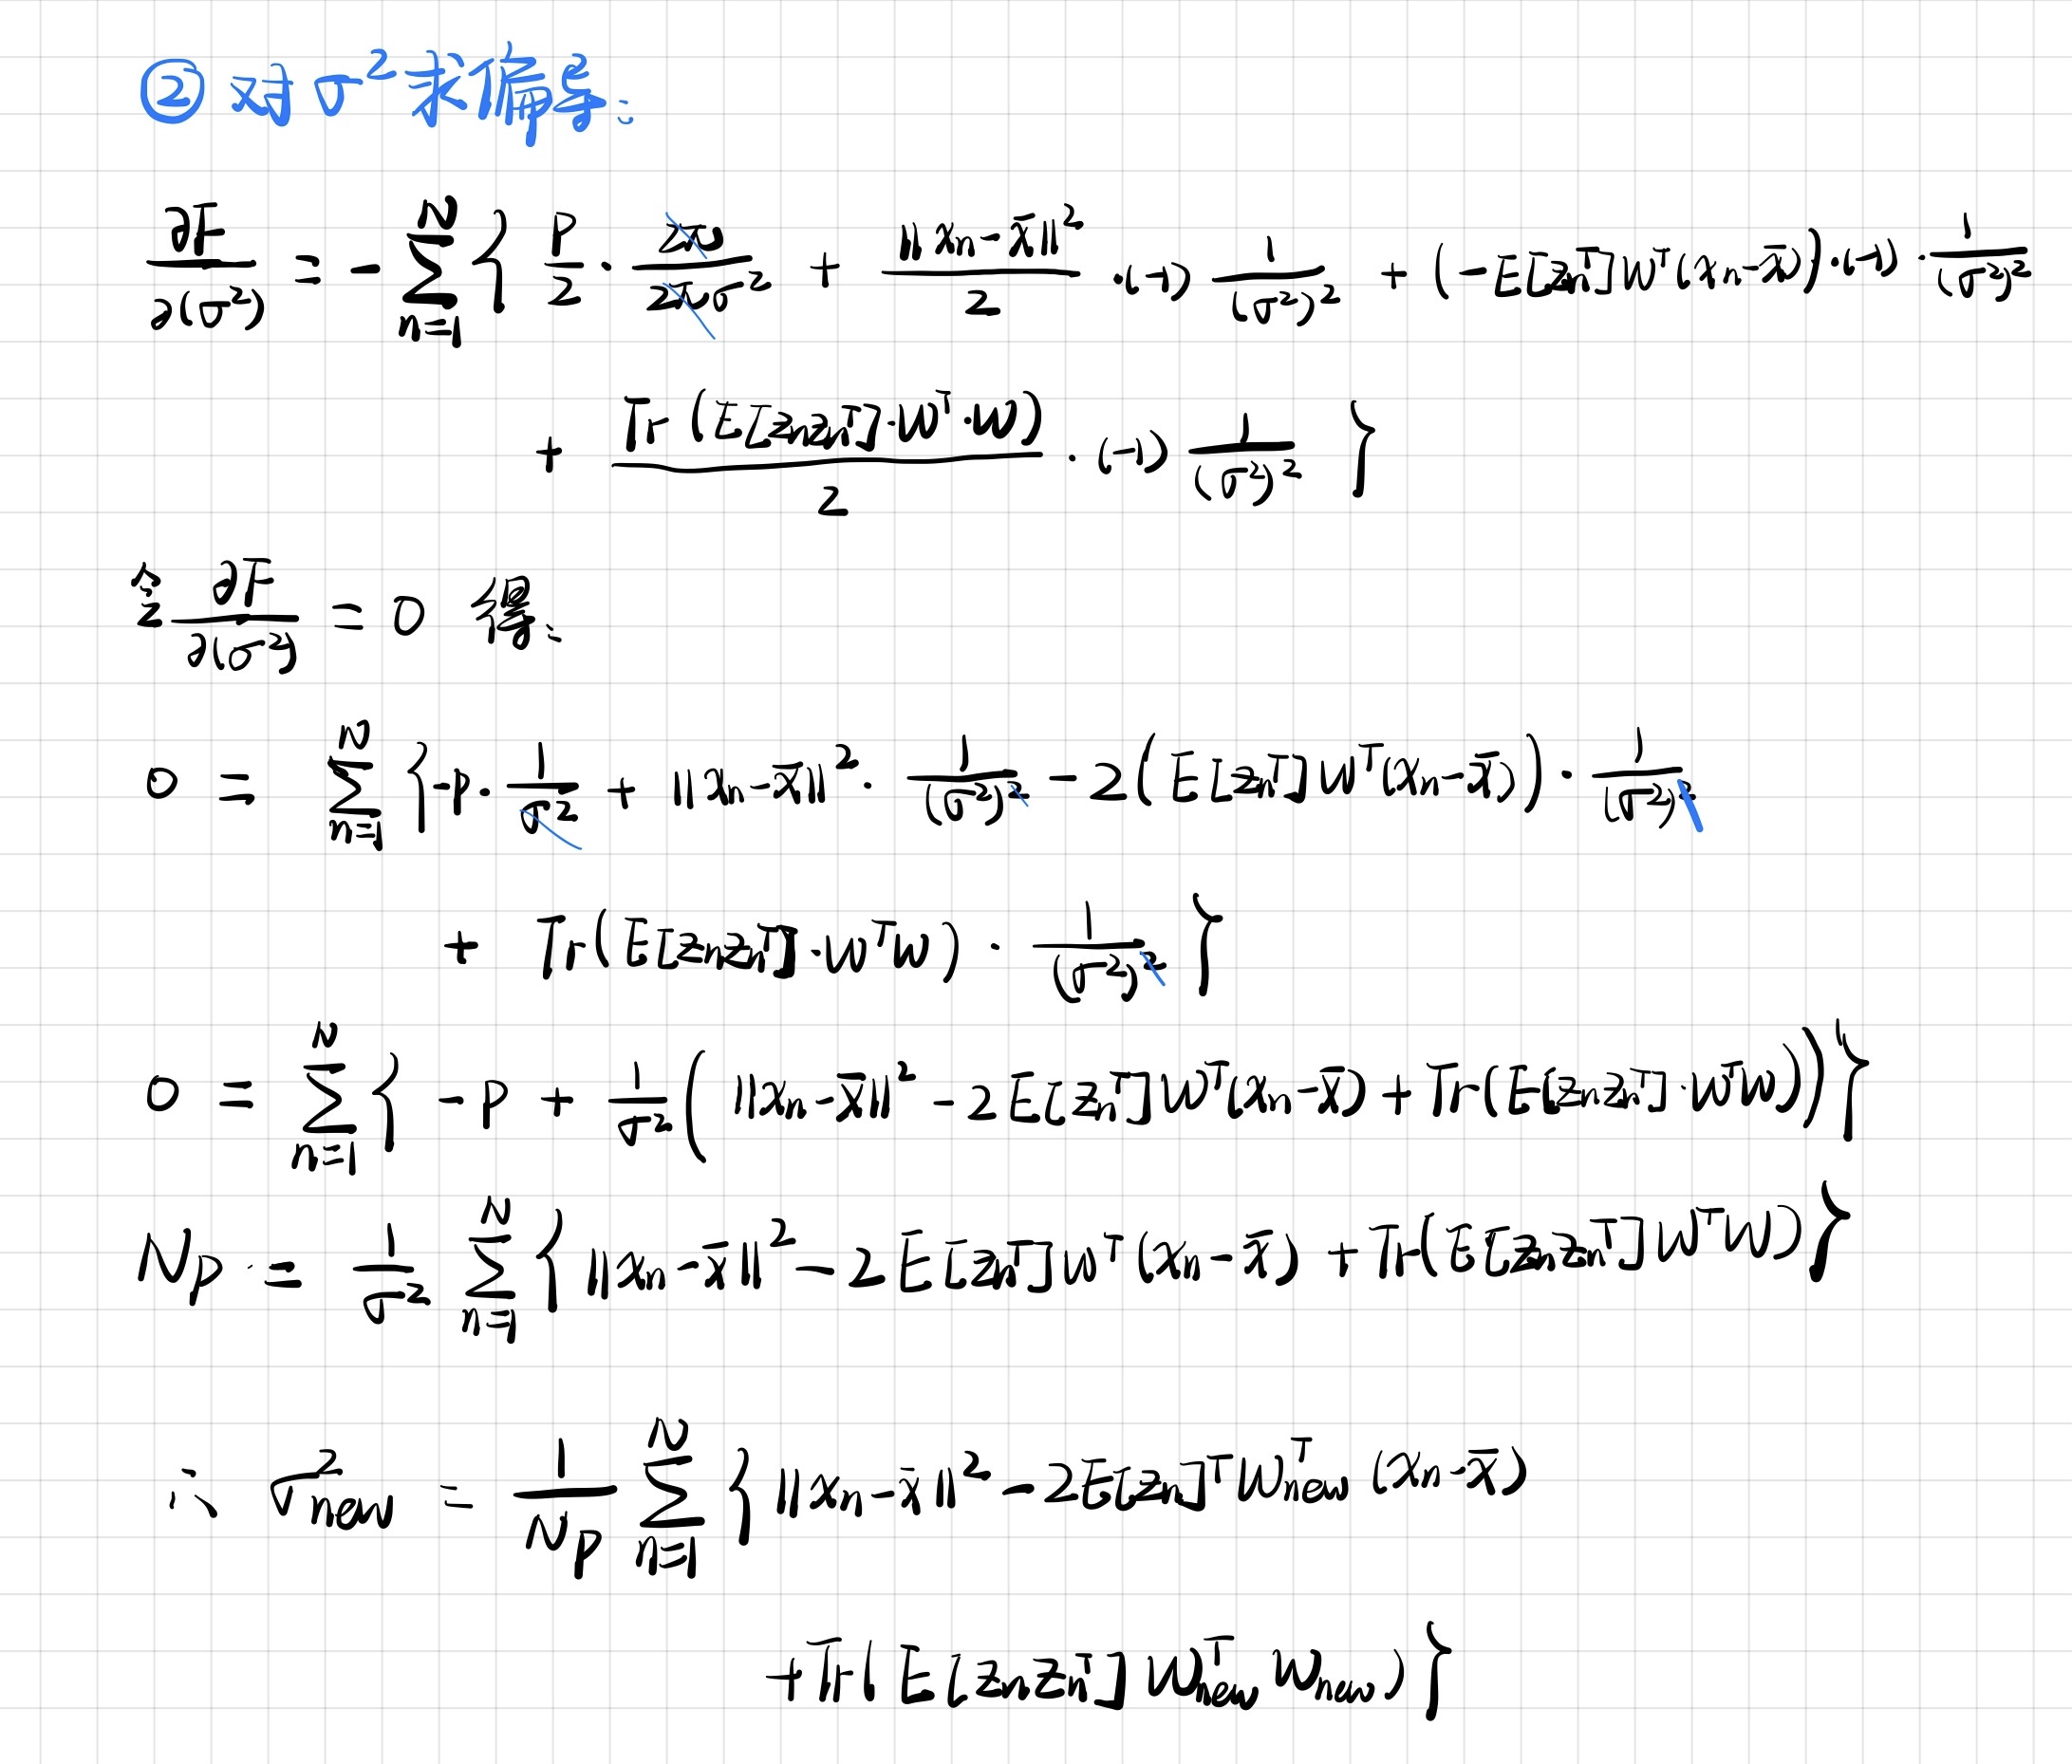 ② 对 σ² 求偏导:
∂F/∂(σ²) = - ∑_{n=1}^{N} { p/2 · 2π/(2πσ²) + ‖xₙ-x̄‖²/2 · (-1) 1/(σ²)² + (-E[zₙᵀ]Wᵀ(xₙ-x̄))·(-1)·1/(σ²)²
+ Tr(E[zₙzₙᵀ]·Wᵀ·W)/2 · (-1) 1/(σ²)² }
令 ∂F/∂(σ²) = 0 得:
0 = ∑_{n=1}^{N} { -p· 1/σ² + ‖xₙ-x̄‖²· 1/(σ²)² - 2(E[zₙᵀ]Wᵀ(xₙ-x̄))· 1/(σ²)²
+ Tr(E[zₙzₙᵀ]·WᵀW) · 1/(σ²)² }
0 = ∑_{n=1}^{N} { -p + 1/σ² (‖xₙ-x̄‖² - 2E[zₙᵀ]Wᵀ(xₙ-x̄) + Tr(E[zₙzₙᵀ]·WᵀW)) }
Np = 1/σ² ∑_{n=1}^{N} { ‖xₙ-x̄‖² - 2E[zₙᵀ]Wᵀ(xₙ-x̄) + Tr(E[zₙzₙᵀ]WᵀW) }
∴ σ²_{new} = 1/(Np) ∑_{n=1}^{N} { ‖xₙ-x̄‖² - 2E[zₙ]ᵀWᵀ_{new}(xₙ-x̄)
+ Tr(E[zₙzₙᵀ]Wᵀ_{new}W_{new}) }